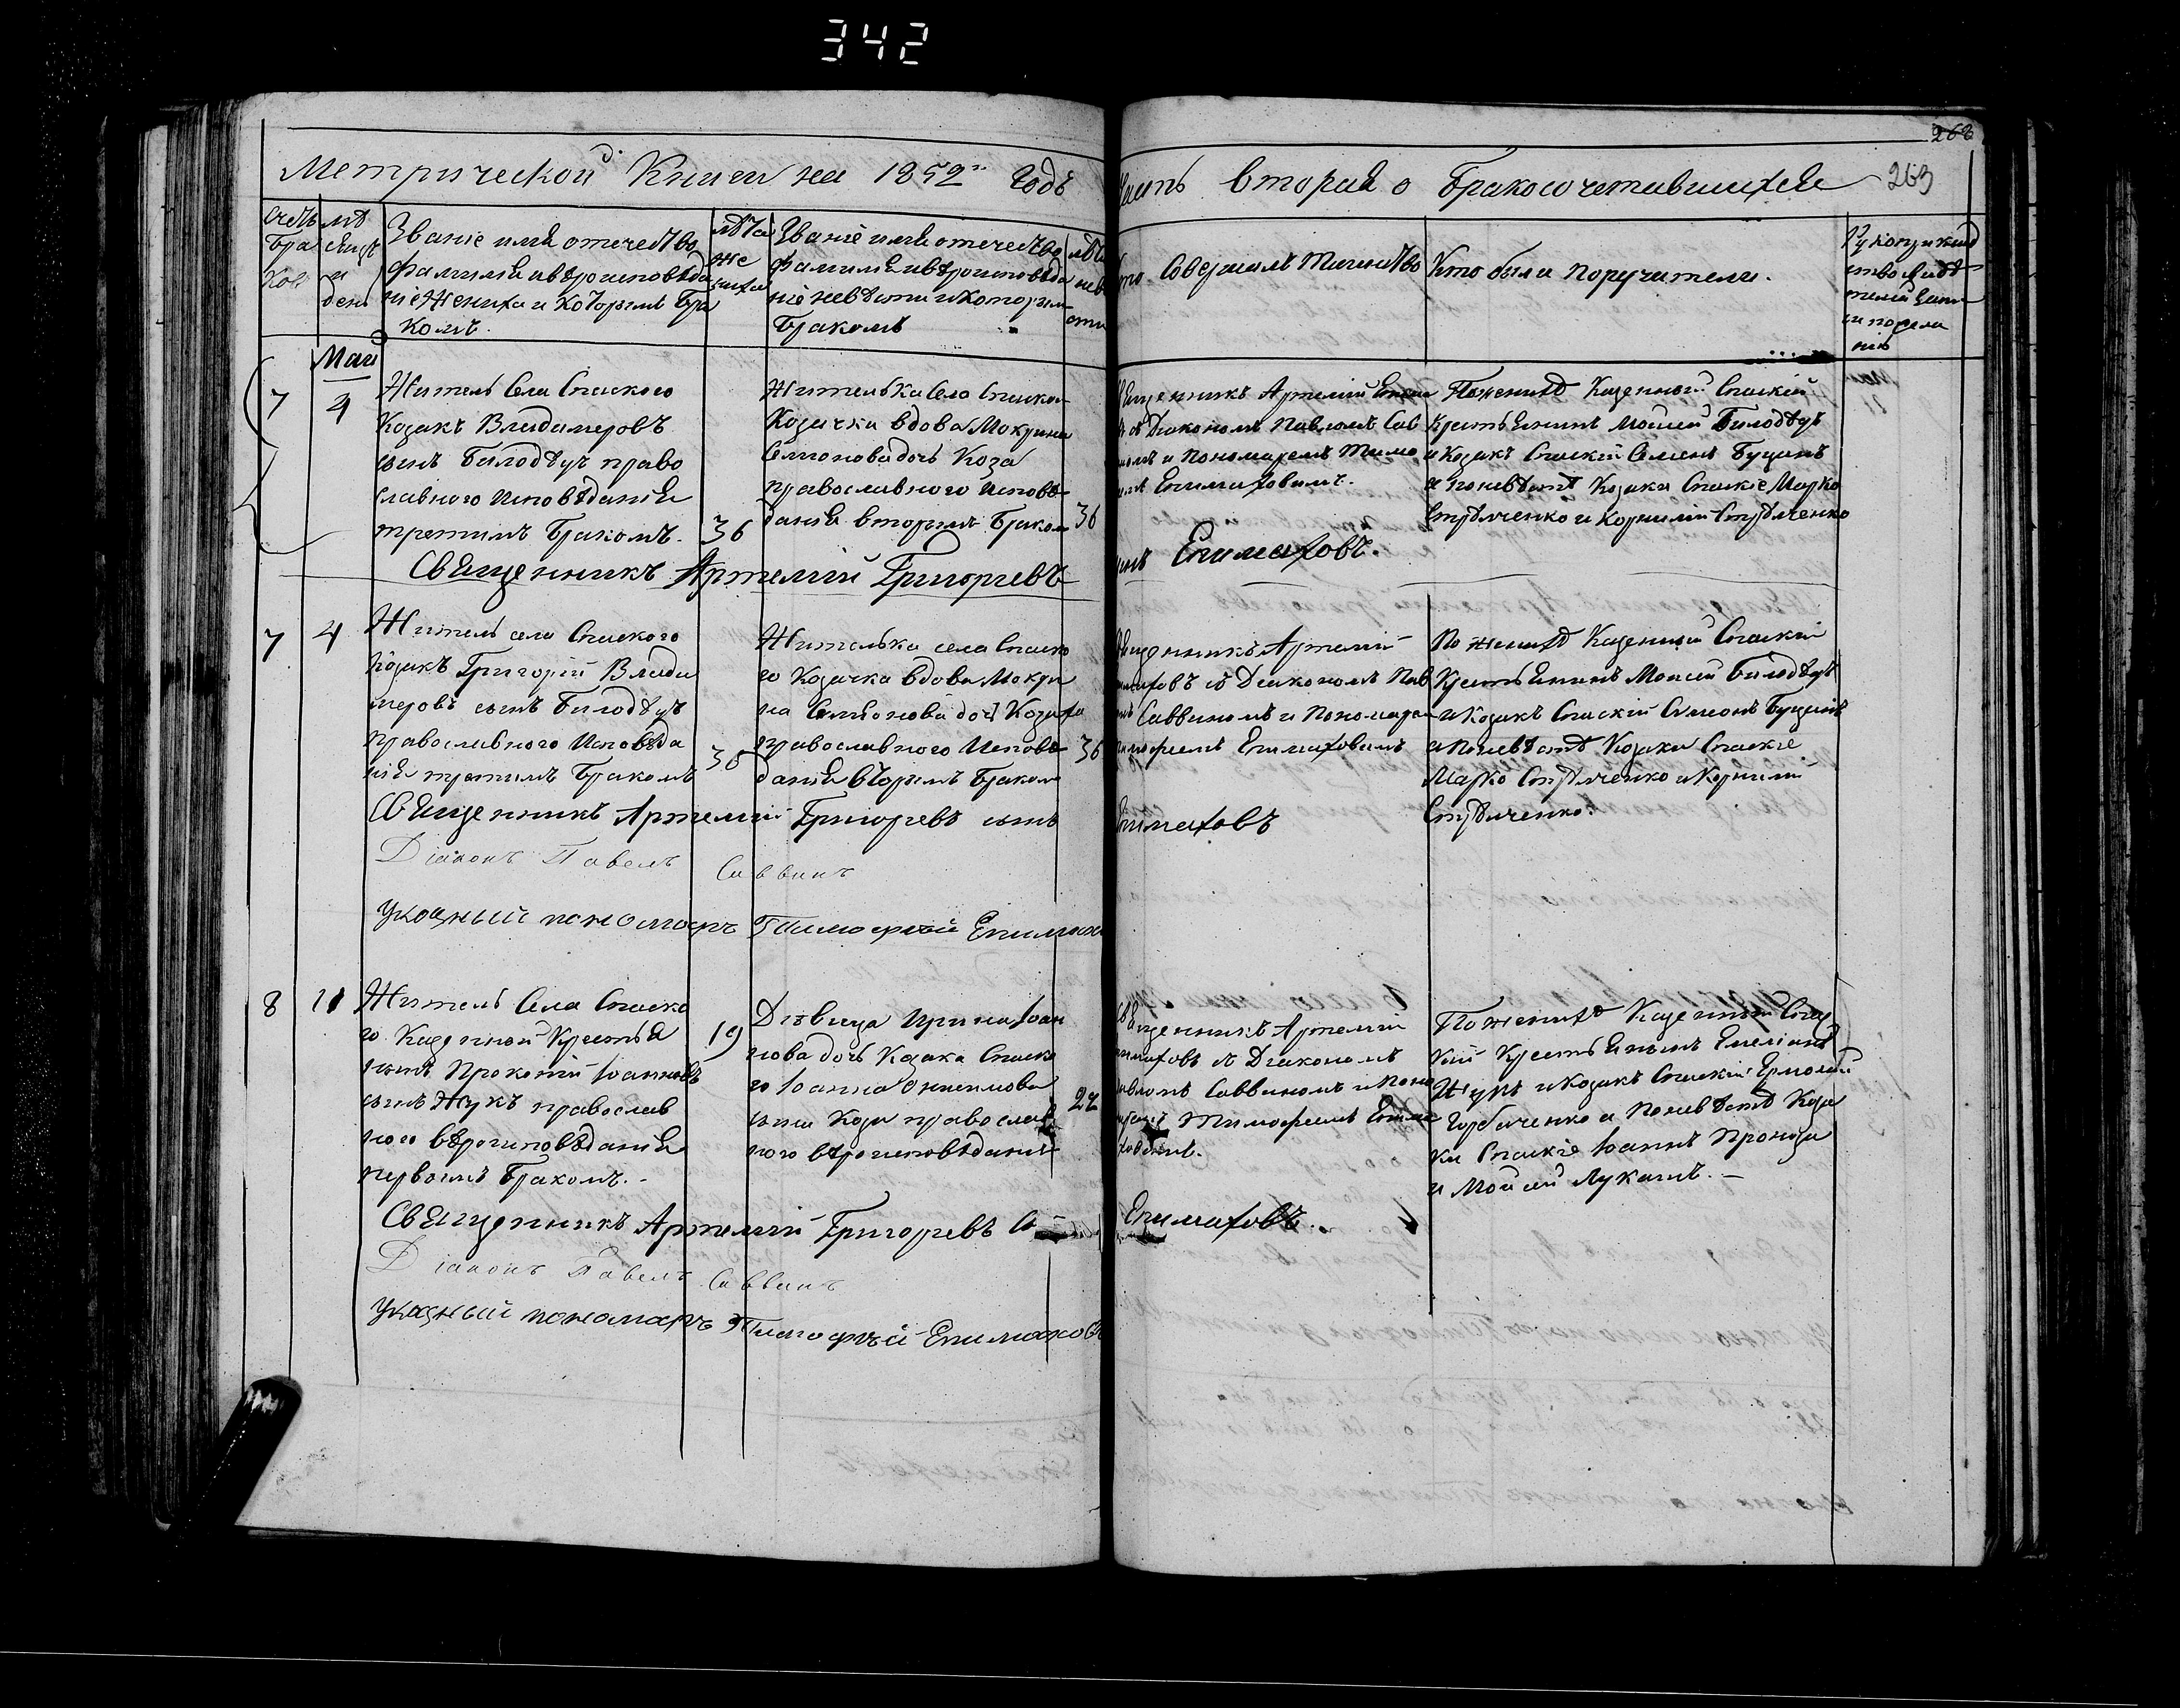 342
268
263
Метрической Книги на 1852й Годъ
часть вторая о Бракосочетавшихся
Счетъ Браков
мѣсяцъ и день
Званіе имя отечество
фамилія и вѣроисповѣда
ніе Жениха и Которымъ Бра
комъ.
лѣта жениха
Званіе имя отечество
фамилія и вѣроисповѣда
ніе невѣсты и которым
бракомъ
лѣта невѣсты
Кто Совершалъ Таинство
Кто были поручители.
Рукоприклад
ство свидѣ
телей записи
по жела
нію
Май
7
4
Житель Села Спаского
Козакъ Владимеровъ
сынъ Билодѣдъ право
славного исповѣданія
третимъ Бракомъ.
36
Жителька Села Спаского
Козачка вдова Мокрина
Семионова дочь Коза
православного исповѣ
данія вторымъ Браком
36
Священникъ Артемій
съ Діакономъ Павломъ Сав
иномъ и Пономаремъ Тимо
Епимаховымъ.
По женихѣ Казенный Спаский
Крестьянинъ Моисей Билодѣдъ
и Козакъ Спаскій Семенъ Буцанъ
а по невѣстѣ Козаки Спаскіе Марко
Стрѣлченко и Корнилій Стрѣлченко
Священникъ Артемій Григорьевъ
сынъ Епимаховъ.
7
4
Житель села Спаского
Козакъ Григорій Влади
меровъ сынъ Билодѣдъ
Православного Исповѣда
нія третимъ Бракомъ
36
Жителька села Спаско
го Козачка вдова Мокри
на Семионова дочь
православного Исповѣ
данія вторимъ Браком
36
Священникъ Артемій
Епимаховъ съ Діакономъ Пав
ломъ Саввиномъ и Пономарем
Тимофеемъ Епимаховымъ
По женихѣ Казенный Спаский
Крестьянинъ Моисей Билодѣдъ
и Козакъ Спаскій Симеонъ Буцанъ
а по невѣстѣ Козаки Спаскіе
Марко Стрѣлченко и Корнилій
Стрѣлченко.
Священникъ Артемій Григорьевъ сынъ Епимаховъ
Діаконъ Павелъ Саввинъ
Указный пономарь Тимофей Епимахо
8
11
Житель Села Спаско
го Казенной Крестья
нинъ Прокопій Іоанновъ
сынъ Жукъ православ
ного вѣроисповѣданія
первымъ Бракомъ.
19
Дѣвица Ирина Іоан
нова дочь Козака Спаско
го Іоанна Онисимова
сына Козы православ
ного вѣроисповѣданія
22
Священникъ Артемій
Епимаховъ съ Діакономъ
Павломъ Саввиномъ и Поно
маремъ Тимофеемъ Епима
ховымъ.
По женихѣ Казенный Спас
кий Крестьянинъ Емеліанъ
Жукъ и Козакъ Спаскій Ермолай
Горбаченко а по невѣстѣ Коза
ки Спаскіе Іоаннъ
и Моисей Лукашъ.
Священникъ Артемій Григорьевъ с Епимаховъ.
Діаконъ Павелъ Саввинъ
Указный пономарь Тимофѣй Епимаховъ